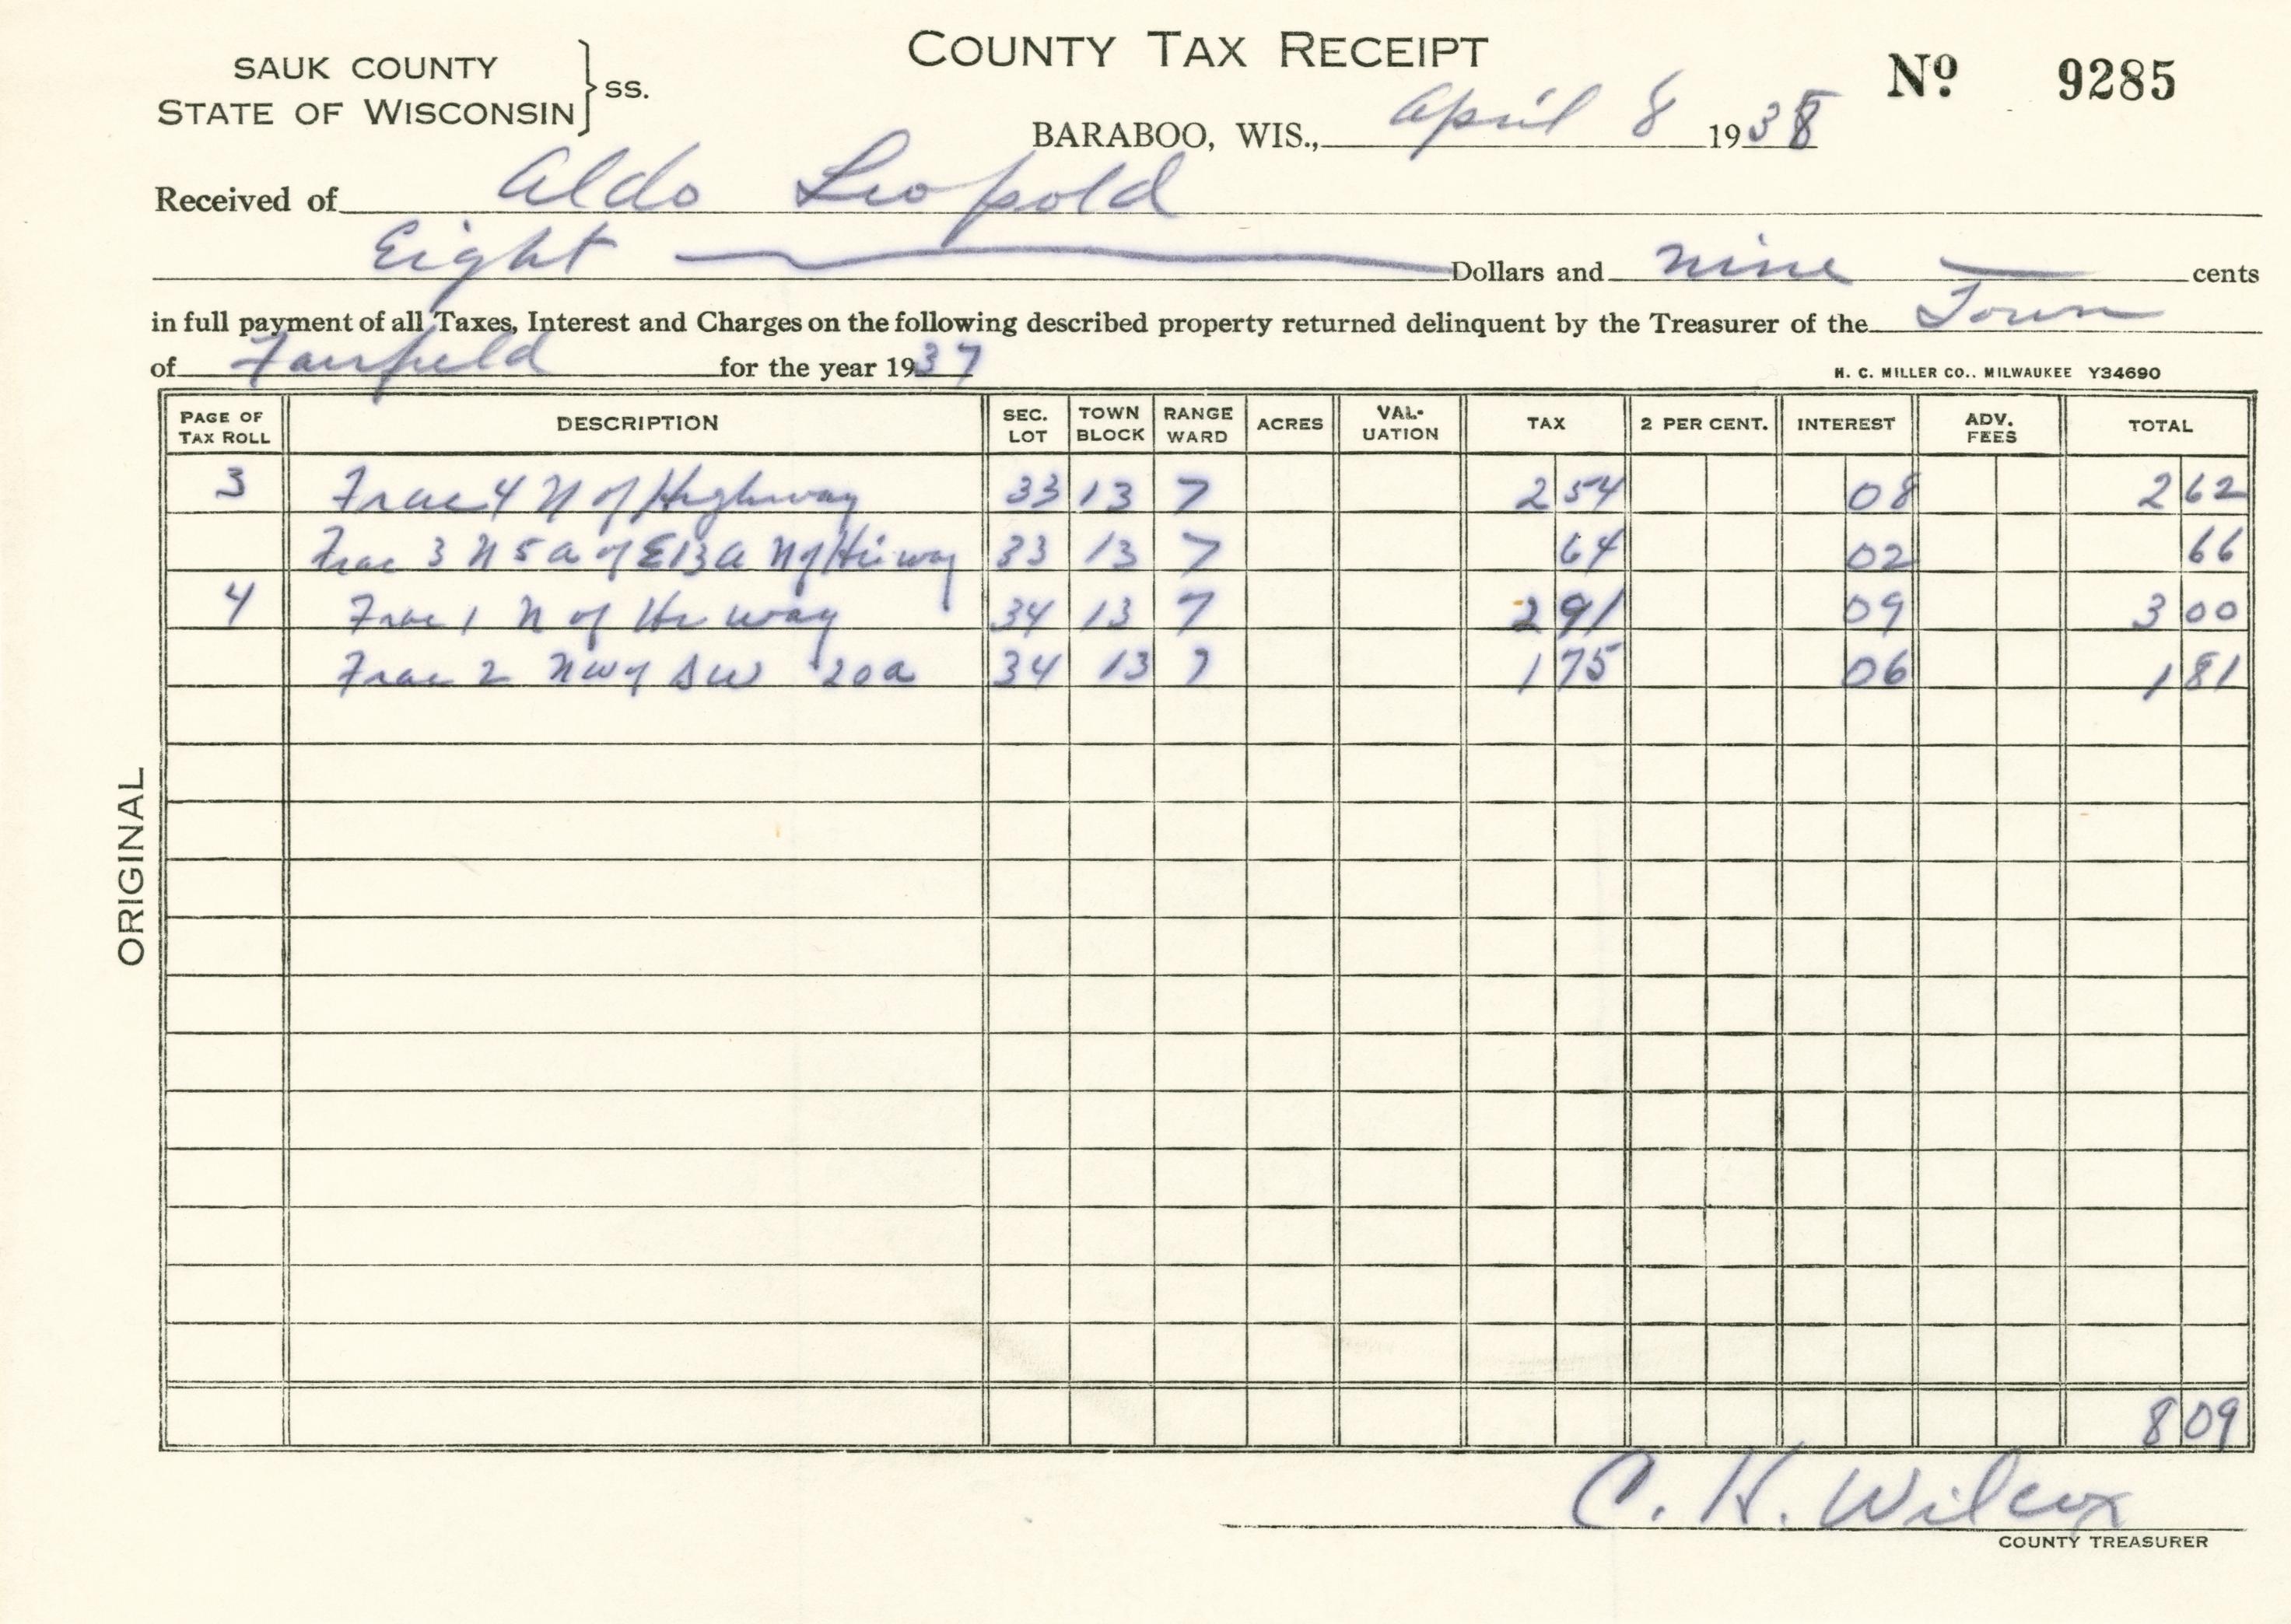 COUNTY TAX RECEIPT
SAUK COUNTY
STATE OF WISCONSIN } SS.
Nº 9285
BARABOO, WIS., April 8 1938
Received of Aldo Leopold
Eight Dollars and nine cents
in full payment of all Taxes, Interest and Charges on the following described property returned delinquent by the Treasurer of the Town
of Fairfield for the year 1937
H. C. MILLER CO., MILWAUKEE Y34690
PAGE OF TAX ROLL DESCRIPTION SEC. LOT TOWN BLOCK RANGE WARD ACRES VAL-UATION TAX 2 PER CENT. INTEREST ADV. FEES TOTAL
3 Frac 4 N of Highway 33 13 7 2 54 08 2 62
Frac 3 N 5 a of E13 a N of Hiway 33 13 7 64 02 66
4 Frac 1 N of Hi way 34 13 7 2 91 09 3 00
Frac 2 NW of SW 20a 34 13 7 1 75 06 1 81
8 09
ORIGINAL
C. H. Wilcox
COUNTY TREASURER